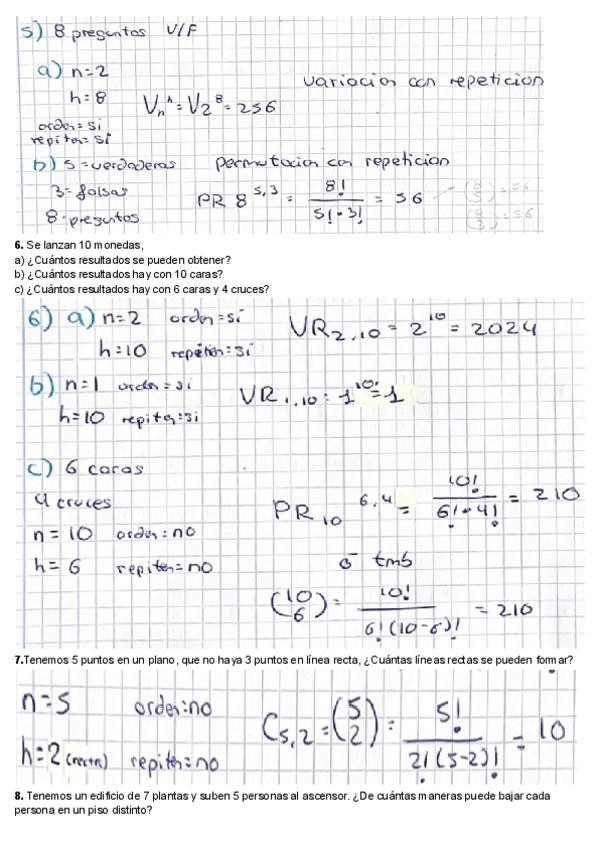 5) 8 preguntas V/F
a) n=2
variacion con repeticion
h=8 Vₙʰ=V₂⁸=256
orden=si
repiten=si
b) 5=verdaderas permutacion con repeticion
3=falsas PR 8⁵,³ = 8!/5!·3! = 56 (8/5)=56
8=preguntas (8/3)=56
6. Se lanzan 10 monedas,
a) ¿Cuántos resultados se pueden obtener?
b) ¿Cuántos resultados hay con 10 caras?
c) ¿Cuántos resultados hay con 6 caras y 4 cruces?
6) a) n=2 orden=si VR₂,₁₀ = 2¹⁰ = 2024
h=10 repiten=si
b) n=1 orden=si VR₁,₁₀ = 1¹⁰=1
h=10 repiten=si
c) 6 caras
4 cruces PR₁₀⁶,⁴ = 10!/6!·4! = 210
n=10 orden=no
h=6 repiten=no o tmb
(10/6) = 10!/6!(10-6)! = 210
7.Tenemos 5 puntos en un plano, que no haya 3 puntos en línea recta, ¿Cuántas líneas rectas se pueden formar?
n=5 orden:no C₅,₂=(5/2) = 5!/2!(5-2)! = 10
h=2 (recta) repiten=no
8. Tenemos un edificio de 7 plantas y suben 5 personas al ascensor. ¿De cuántas maneras puede bajar cada
persona en un piso distinto?